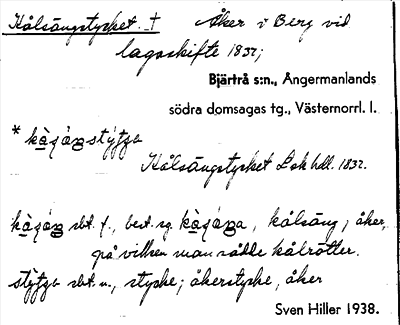 Kålsängstycket. † Åker i Berg vid
lagaskifte 1832;
Bjärtrå s:n., Ångermanlands
södra domsagas tg., Västernorrl. l.
Kålsängstycket Lsk hdl. 1832.
sbt. f., best. sg. , kålsäng; åker,
på vilken man sådde kålrötter.
sbt. n., stycke; åkerstycke, åker
Sven Hiller 1938.